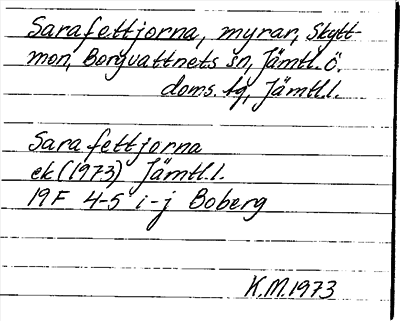 Sarafettjorna, myrar, Skytt-
mon, Borgvattnets sn, Jämtl. ö.
doms. tg, Jämtl.l.
Sarafettjorna
ek (1973) Jämtl.l.
19F 4-5 i-j Boberg
K.M.1973